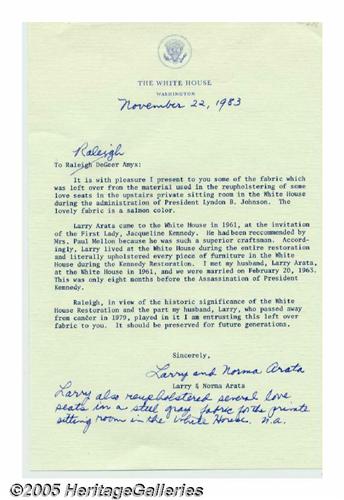 THE WHITE HOUSE
WASHINGTON
November 22, 1983
Raleigh
To Raleigh DeGeer Amyx:
It is with pleasure I present to you some of the fabric which
was left over from the material used in the reupholstering of some
love seats in the upstairs private sitting room in the White House
during the administration of President Lyndon B. Johnson. The
lovely fabric is a salmon color.
Larry Arata came to the White House in 1961, at the
invitation of the First Lady, Jacqueline Kennedy. He had been reccommended by
Mrs. Paul Mellon because he was such a superior craftsman. Accord-
ingly, Larry lived at the White House during the entire restoration
and literally upholstered every piece of furniture in the White
House during the Kennedy Restoration. I met my husband, Larry Arata,
at the White House in 1961, and we were married on February 20, 1963.
This was only eight months before the Assassination of President
Kennedy.
Raleigh, in view of the historic significance of the White
House Restoration and the part my husband, Larry, who passed away
from cancer in 1979, played in it I am entrusting this left over
fabric to you. It should be preserved for future generations.
Sincerely,
Larry and Norma Arata
Larry & Norma Arata
Larry also reupholstered several love
seats in a steel gray fabric for the private
sitting room in the White House. N.A.
©2005 HeritageGalleries